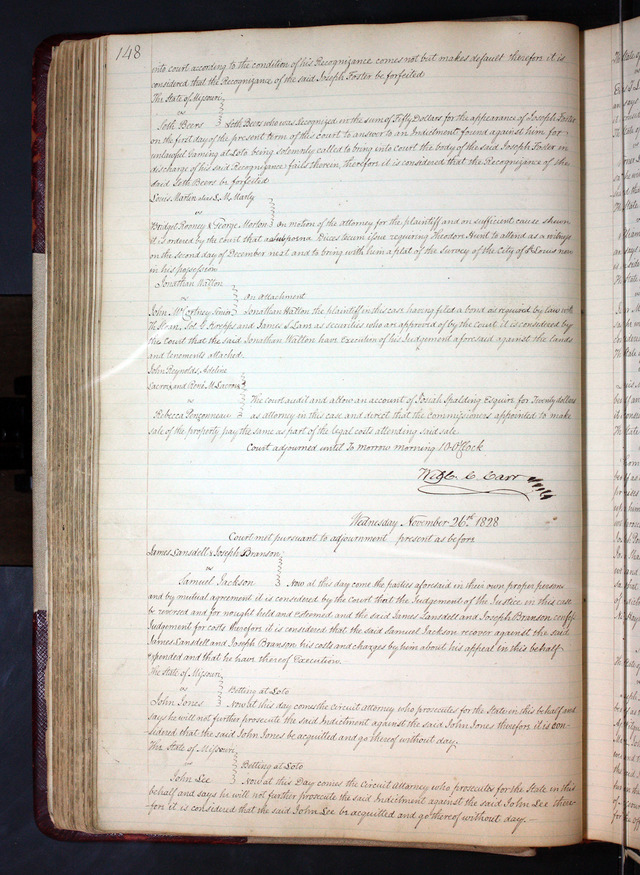 148
into court according to the condition of his Recognizance comes not but makes default therefore it is
considered that the Recognizance of the said Joseph Foster be forfeited
The State of Missouri
vs
Seth Beers } Seth Beers who was recognized in the sum of Fifty Dollars for the appearance of Joseph Foster
on the first day of the present term of this court to answer to an Indictment found against him for
unlawful Gaming at Loto being solemnly called to bring into Court the body of the said Joseph Foster in
discharge of his said Recognizance fails therein, therefore it is considered that the Recognizance of the
said Seth Beers be forfeited
Louis Martin alias L. M. Marly
vs
Bridget Rooney & George Morton } on motion of the attorney for the plaintiff and on sufficient cause shewn
it is ordered by the court that a Subpoena Duces tecum issue requiring Theodore Hunt to attend as a witness
on the second day of December next and to bring with him a plat of the Survey of the City of St Louis now
in his possession
Jonathan Walton
vs } An Attachment
John McCortney Senior } Jonathan Walton the plaintiff in this case having filed a bond as required by law with
Sol. G. and James S Lam as securities who are approved of by the Court it is considered by
the Court that the said Jonathan Walton have Execution of his Judgement aforesaid against the Lands
and tenements attached.
John Reynolds, Adeline
Sacroix and M. Sacroix
vs } The court audit and allow an account of Josiah Spalding Esquire for Twenty dollars
Rebecca Ponconneau } as attorney in this case and direct that the Commissioners appointed to make
sale of the property pay the same as part of the legal costs attending said sale
Court adjourned until To morrow morning 10 OClock
C. Carr
Wednesday November 26th 1828
Court met pursuant to adjournment present as before
James Lansdell & Joseph Branson
vs
Samuel Jackson } Now at this day come the parties aforesaid in their own proper persons
and by mutual agreement it is considered by the Court that the Judgement of the Justice in this case
be reversed and for nought held and esteemed and the said James Lansdell and Joseph Branson confess
Judgement for costs therefore it is considered that the said Samuel Jackson recover against the said
James Lansdell and Joseph Branson his costs and charges by him about his appeal in this behalf
expended and that he have thereof Execution.
The State of Missouri
vs } Betting at Loto
John Jones } Now at this day comes the Circuit attorney who prosecutes for the State in this behalf and
says he will not further prosecute the said Indictment against the said John Jones therefore it is con-
sidered that the said John Jones be acquitted and go thereof without day.
The State of Missouri
vs } Betting at Loto
John Lee } Now at this Day comes the Circuit Attorney who prosecutes for the State in this
behalf and says he will not further prosecute the said Indictment against the said John Lee there-
fore it is considered that the said John Lee be acquitted and go thereof without day.